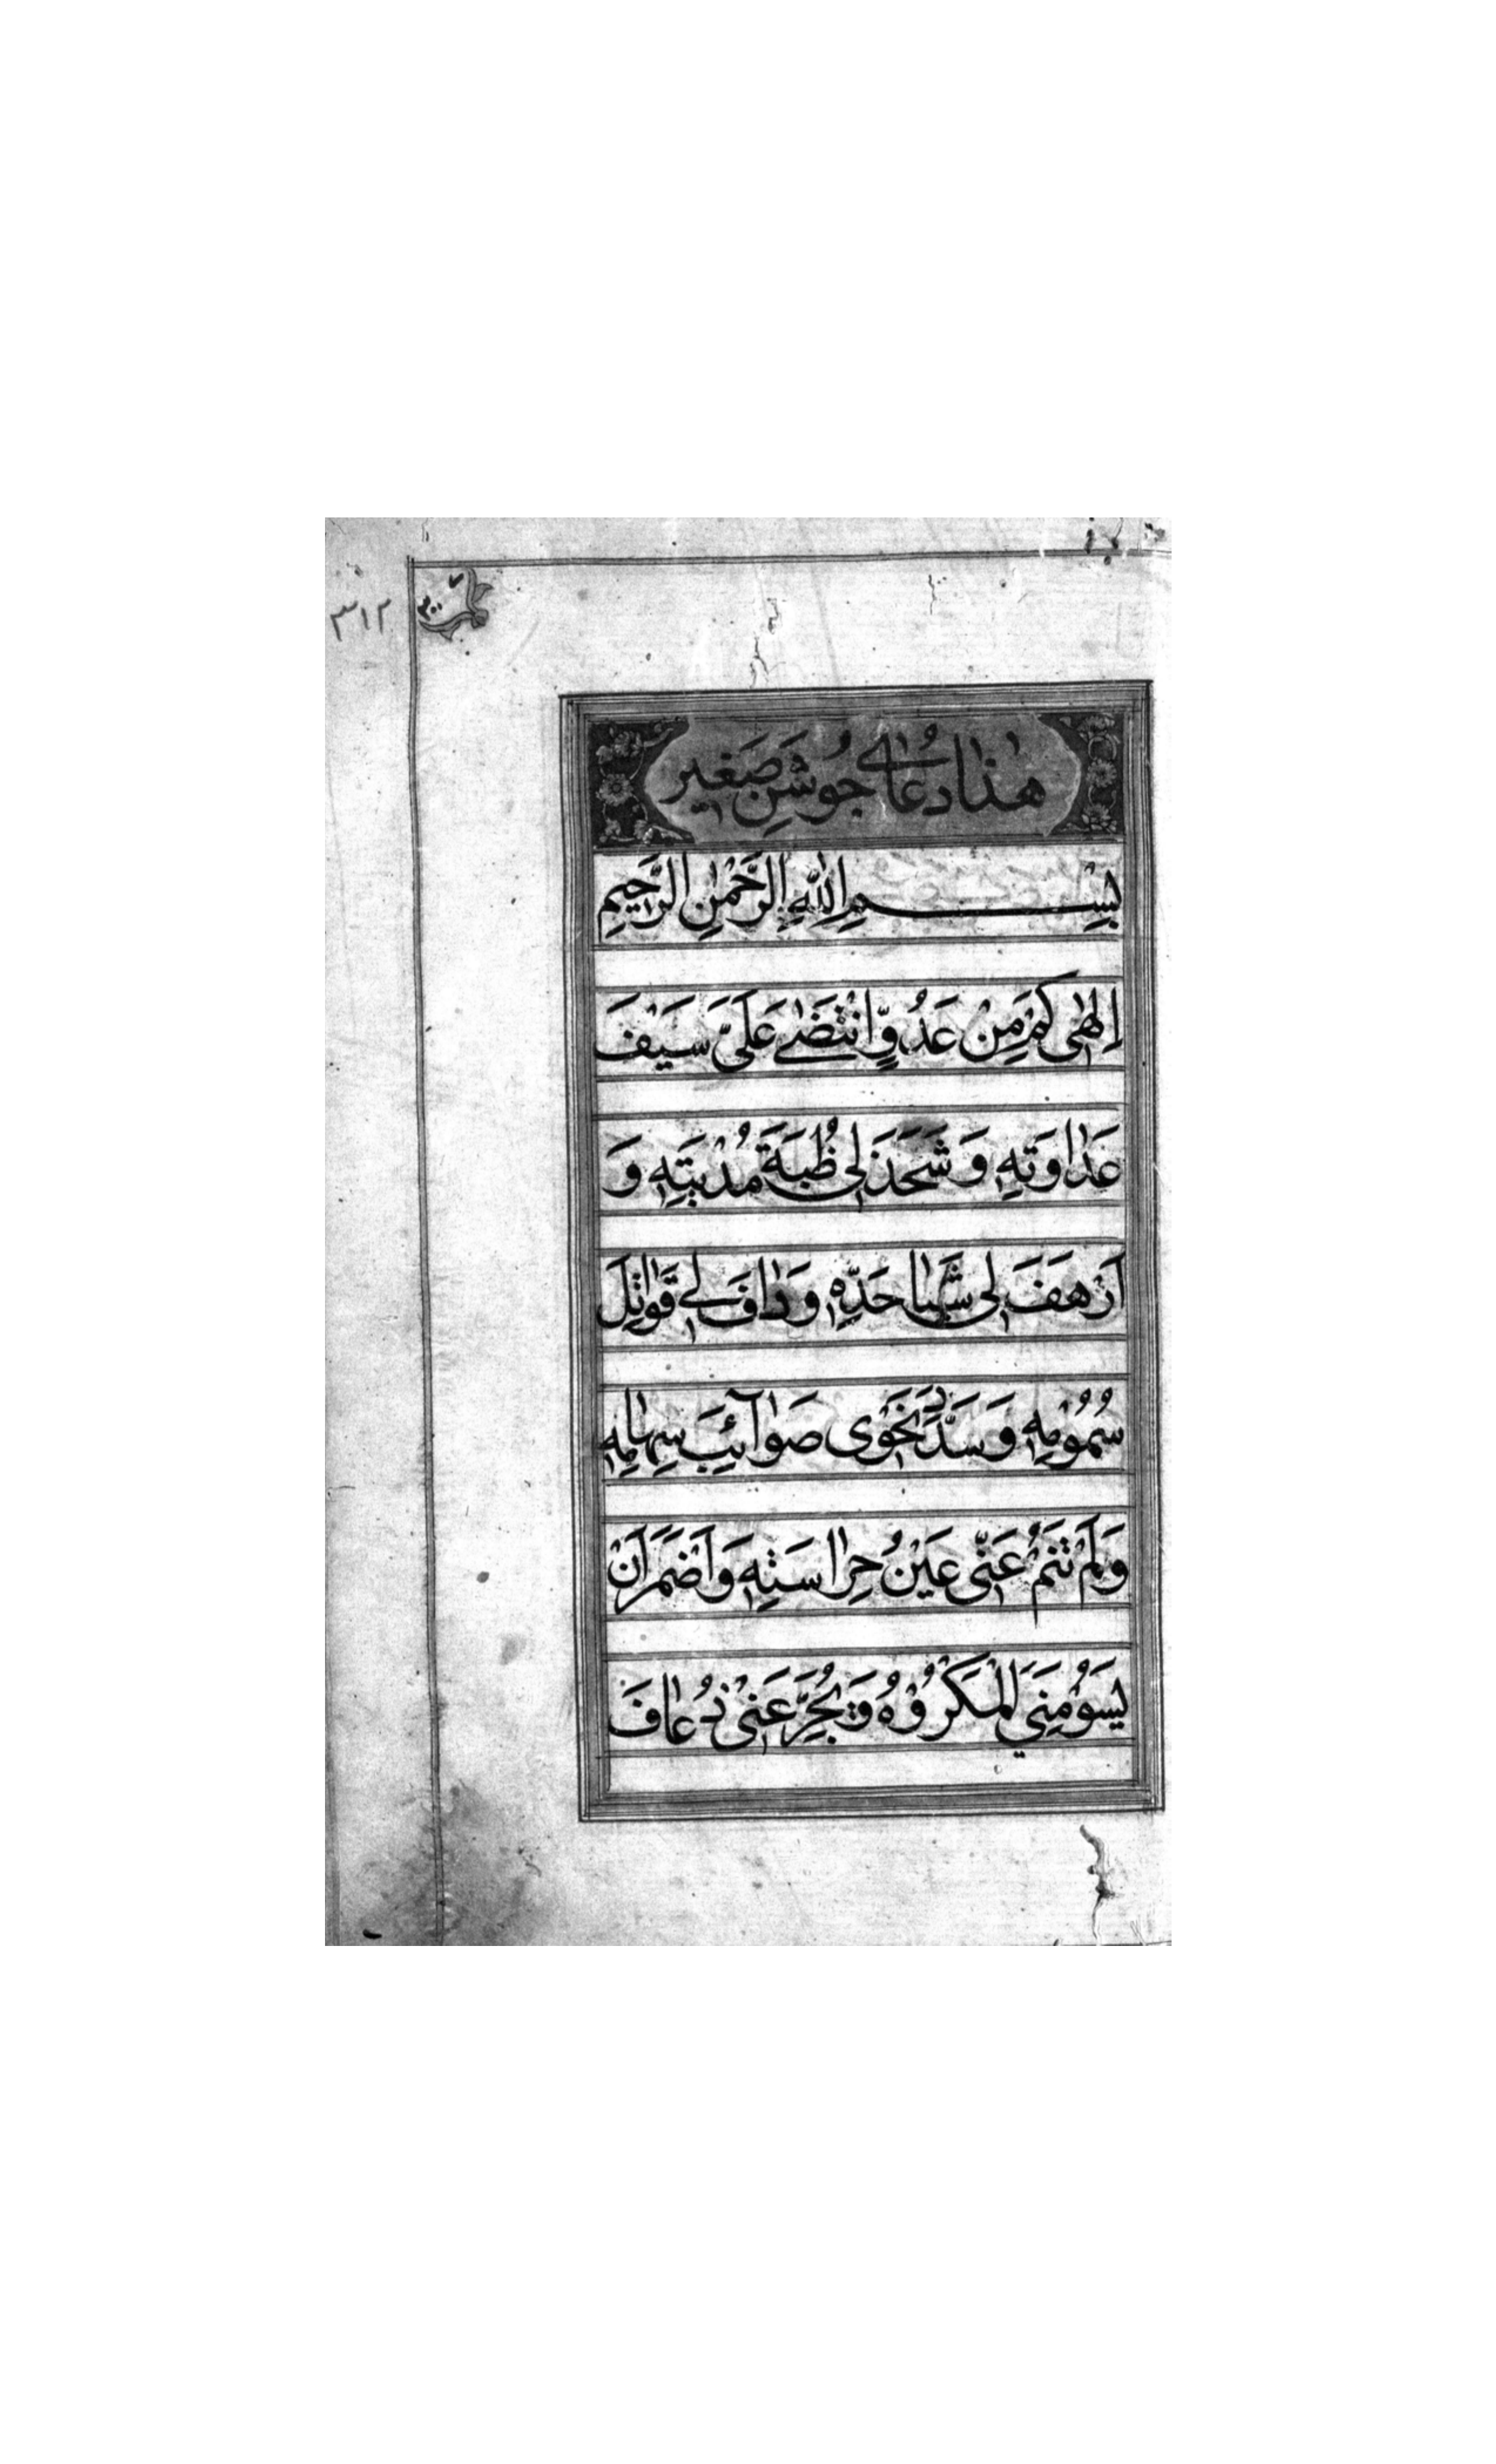 ٣١٢
٣٠٠
هٰذا دُعٰاے جُوشَنِ صَغیر
بِسْمِ اللّٰهِ الرَّحْمٰنِ الرَّحِيمِ
اِلٰهٰى كَمْ مِنْ عَدُوٍّ انْتَضٰى عَلَىَّ سَيْفَ
عَدٰاوَتِهِ وَ شَحَذَ لٖى ظُبَةَ مُدْيَتِهِ وَ
اَرْهَفَ لٖى شَبٰا حَدِّهِ وَ دٰافَ لٖى قَوٰاتِلَ
سُمُوْمِهِ وَ سَدَّدَ نَحْوٖى صَوٰآئِبَ سِهٰامِهِ
وَ لَمْ تَنَمْ عَنّٖى عَيْنُ حِرٰاسَتِهِ وَ اَضْمَرَ اَنْ
يَسُوْمَنِيَ الْمَكْرُوْهَ وَ يُجَرِّعَنٖى ذُعٰافَ